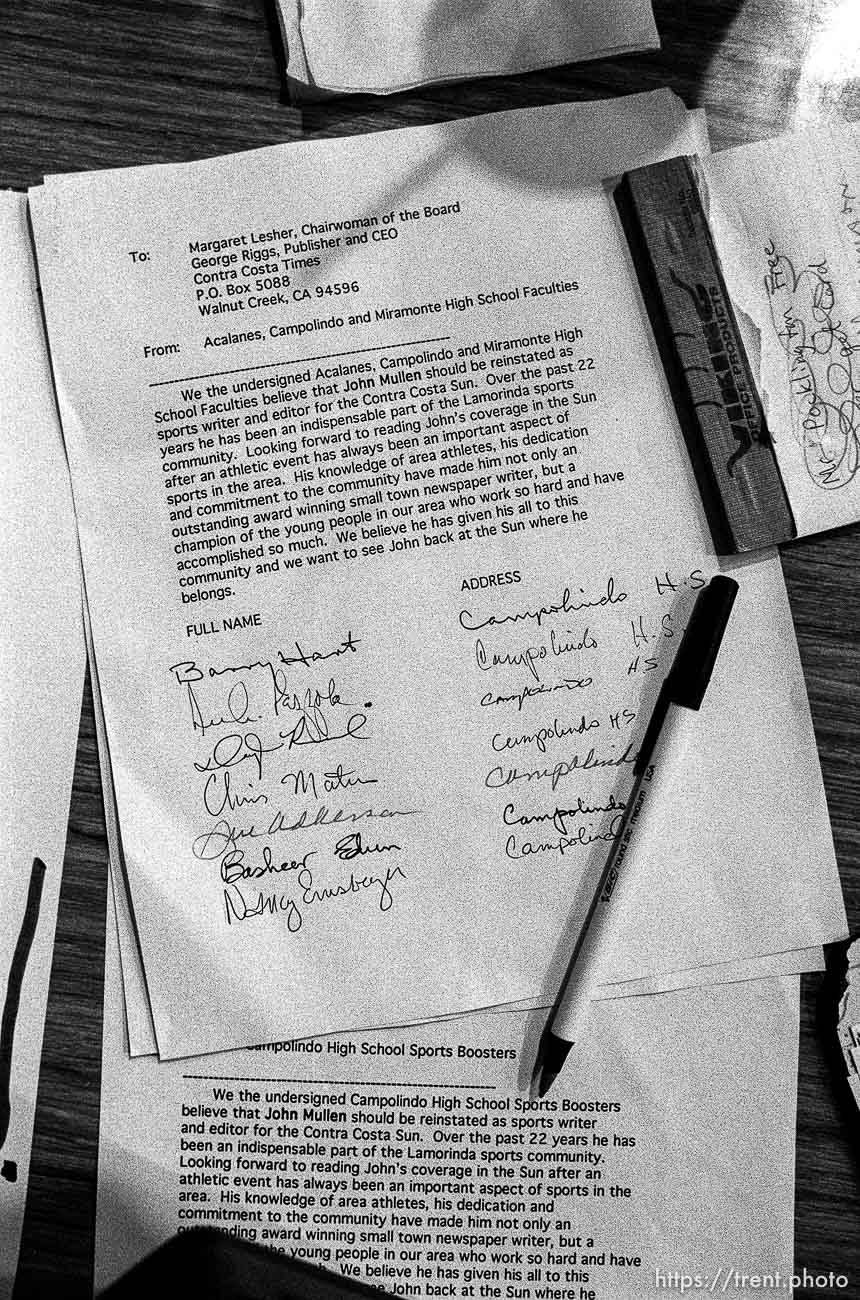 To:
Margaret Lesher, Chairwoman of the Board
George Riggs, Publisher and CEO
Contra Costa Times
P.O. Box 5088
Walnut Creek, CA 94596
From: Acalanes, Campolindo and Miramonte High School Faculties
We the undersigned Acalanes, Campolindo and Miramonte High
School Faculties believe that John Mullen should be reinstated as
sports writer and editor for the Contra Costa Sun. Over the past 22
years he has been an indispensable part of the Lamorinda sports
community. Looking forward to reading John's coverage in the Sun
after an athletic event has always been an important aspect of
sports in the area. His knowledge of area athletes, his dedication
and commitment to the community have made him not only an
outstanding award winning small town newspaper writer, but a
champion of the young people in our area who work so hard and have
accomplished so much. We believe he has given his all to this
community and we want to see John back at the Sun where he
belongs.
FULL NAME ADDRESS
Barry Hart Campolindo H.S.
Campolindo H.S.
Campolindo HS
Chris Campolindo HS
Campolindo
Basheer Campolindo
Nancy Campolindo
VIKING
OFFICE PRODUCTS
Campolindo High School Sports Boosters
We the undersigned Campolindo High School Sports Boosters
believe that John Mullen should be reinstated as sports writer
and editor for the Contra Costa Sun. Over the past 22 years he has
been an indispensable part of the Lamorinda sports community.
Looking forward to reading John's coverage in the Sun after an
athletic event has always been an important aspect of sports in the
area. His knowledge of area athletes, his dedication and
commitment to the community have made him not only an
outstanding award winning small town newspaper writer, but a
the young people in our area who work so hard and have
We believe he has given his all to this
John back at the Sun where he
https://trent.photo